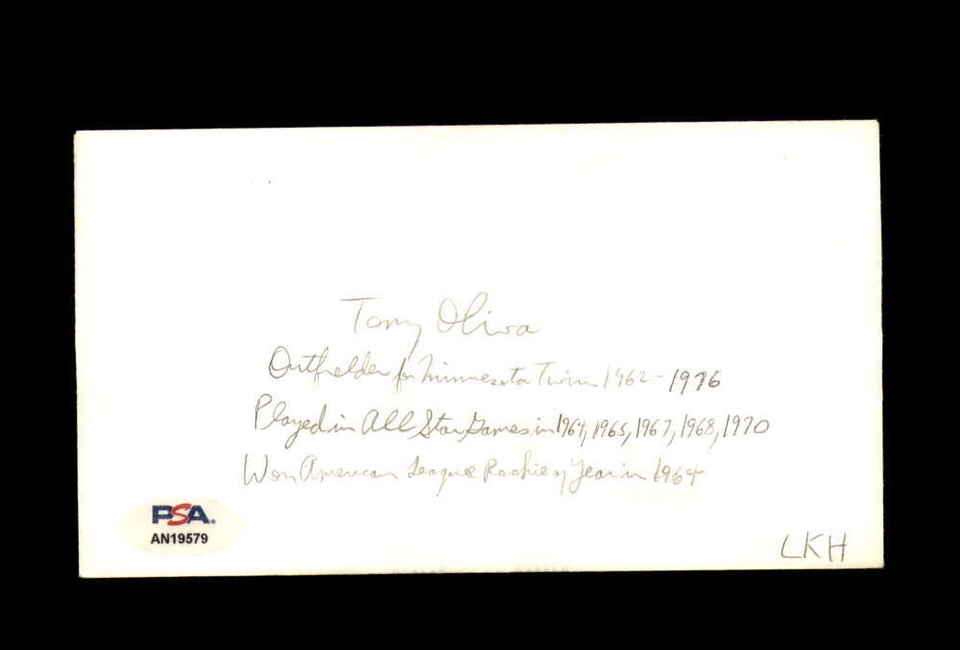 Tony Oliva
Outfielder for Minnesota Twins 1962-1976
Played in All Star Games in 1964, 1965, 1967, 1968, 1970
Won American League Rookie of Year in 1964
PSA.
AN19579
LKH